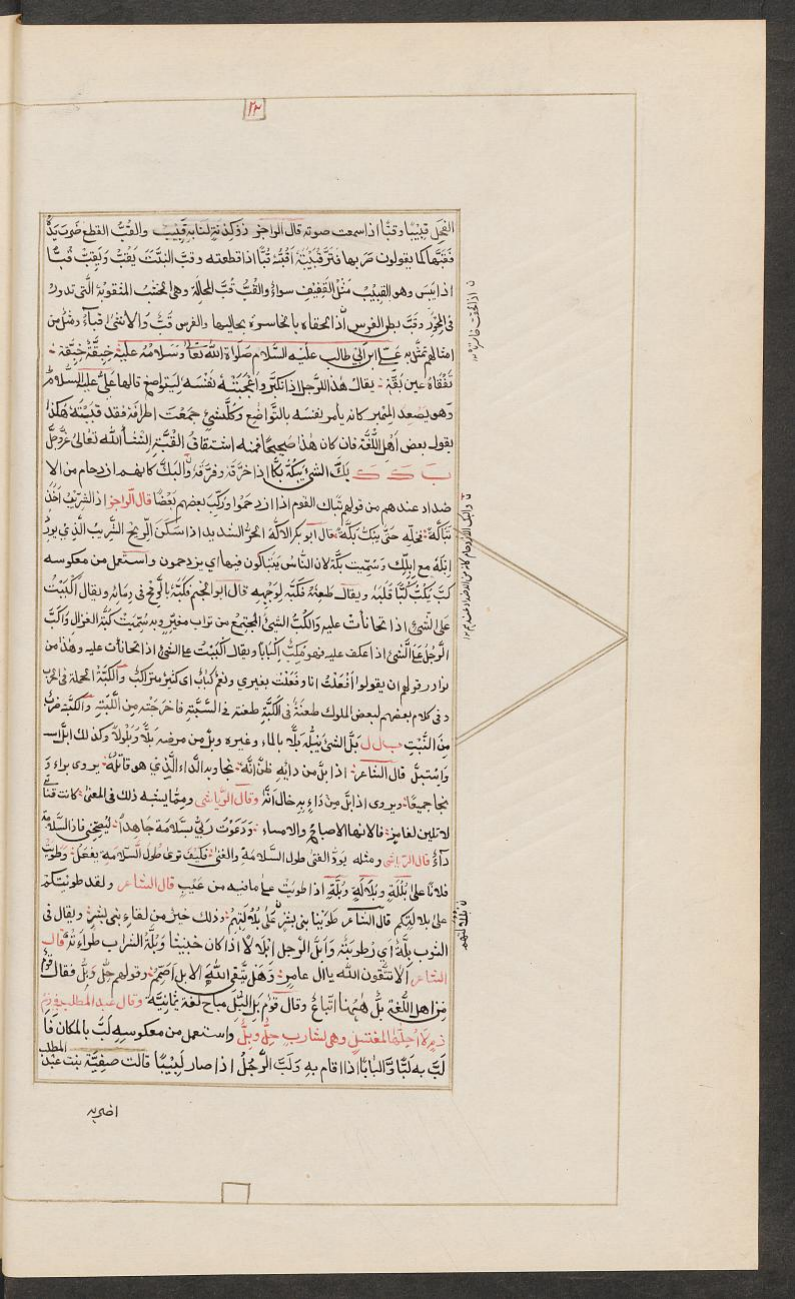 ٢٣
الفحل قبيبا وقبا اذا سمعت صوته قال الراجز ذو كدنة لنابه قبيب والقب القطع ضرب يده
فقبها كما يقولون مر بها فترّ قبيته اقبه قبا اذا قطعته وقب النبت يقب ويقب قبا
اذا يبس وهو القبيب مثل القفيف سواء والقب قب المحالة وهى الخشب المنقوبة الّتى تدور
فى المحور وقب بطن الفرس اذا لحقتاه باخاصرتاه بحالبيها والفرس قب والانثى قباء ومثل من
امثالهم تمثل به على ابن ابي طالب عليه السلام صلواة الله تعالى وسلامه عليه حبقّة حبقّة
ترق عين بقّة يقال هذا للرجل اذا تكبر واعجبته نفسه ليتواضع قالها علىّ عليه السلام
وهو يصعد المنبر كانه يأمر نفسه بالتواضع وكل شئ جمعت اطرافه فقد قببته هكذا
يقول بعض اهل اللغة فان كان هذا صحيحا فمنه اشتقاق القبة انشاء الله تعالى عز وجل
ب ك ك بك الشئ يبكه بكا اذا خرقه وفرقه والبك كانهم ازدحام من الا
ضداد عندهم من قولهم تباك القوم اذا ازدحموا وركب بعضهم بعضا قال الراجز اذا الشريب اخذ
ته اكة فخله حتى يبك بكه قال ابو بكر الاكة الحر الشديد اذا سكن الريح الشريب الذي يورد
ابله مع ابلك وسميت بكة لان الناس يتباكون فيها اي يزدحمون واستعمل من معكوسه
كب يكب كبا قلبه ويقال طعنه فكبه لوجهه قال ابو النجم فكبه بالرمح فى دمائه ويقال اكببت
على الشئ اذا تحانات عليه والكب الشئ المجتمع من تراب وغيره وبه سميت كبة الغزل واكب
الرجل على الشئ اذا عكف عليه فهو مكب اكبابا ويقال اكببت على الشئ اذا تحانات عليه وهذا من
نوادر قولهم ان يقولوا افعلت انا وفعلت بغيري ونعم كباب اى كثير متراكب والكبة الحملة فى الحرب
وفى كلام بعضهم لبعض الملوك طعنته فى الكبة طعنة فى السبة فاخرجته من اللبة والكبة ضرب
من النبت ب ل ل بل الشئ يبله بلا بالماء وغيره وبل من مرضه بلا وبلولا وكذلك ابل
واستبل قال الشاعر اذا بل من دائه ظن انه نجا وبه الداء الذي هو قاتله يروى براء و
نجا جميعا ويروى اذا بل من داء به خال انه وقال الرياشى ومما يشبه ذلك فى المعنى كانت قناتي
لا تلين لغامز فالانها الاصباح والامساء ودعوت ربى بسلامة جاهدا ليصحنى فاذا السلامة
داء قال الرياشى ومثله يود الفتى طول السلامة والغنى فكيف ترى طول السلامة يفعل وطويت
فلانا على بللته وبلالته وبلته اذا طويت على ما فيه من عيب قال الشاعر ولقد طويتكم
على بلالتكم قال الشاعر طوينا بنى بشر على بللاتهم وذلك خير من لقاء بنى بشر ويقال فى
الثوب بلة اي رطوبة وابل الرجل ابلالا اذا كان خبيثا وبلة الشراب طراءته قال
الشاعر الا تتقون الله يا ال عامر وهل يتقى الله الابل المصمم وقولهم حل وبل فقال قوم
من اهل اللغة بل ههنا اتباع وقال قوم بل البل مباح لغة يمانية وقال عبد المطلب فى زمزم
لا احلها لمغتسل وهى لشارب حل وبل واستعمل من معكوسه لب بالمكان وا
لب به لبا والبابا اذا اقام به ولب الرجل اذا صار لبيبا قالت صفية بنت عبد المطلب
اضربه